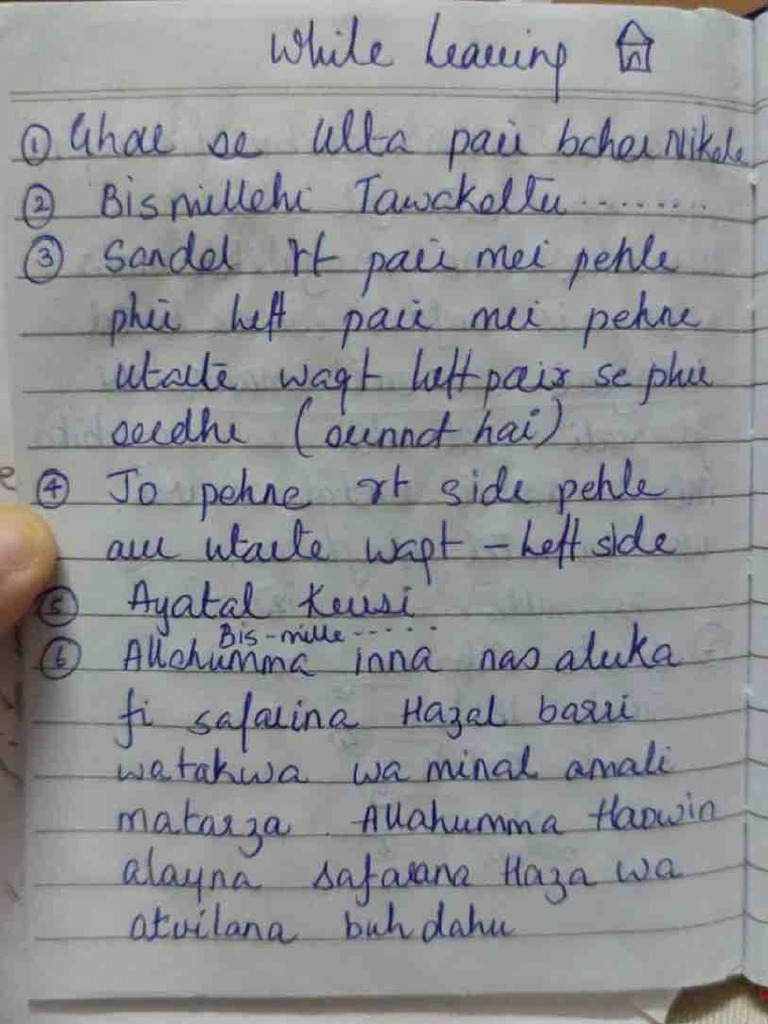 While leaving
① Ghar se Ulta pair baher Nikale
② Bismillehi Tawakeltu ........
③ Sandel rt pair mei pehle
phir left pair mei pehne
utarte waqt left pair se phir
seedhe (sunnat hai)
④ Jo pehne rt side pehle
aur utarte waqt - left side
⑤ Ayatal Kursi
Bis-mille ......
⑥ Allahumma inna nas aluka
fi safarina Hazal barri
watakwa wa minal amali
matarza. Allahumma Haowin
alayna safarana Haza wa
atvilana buhdahu